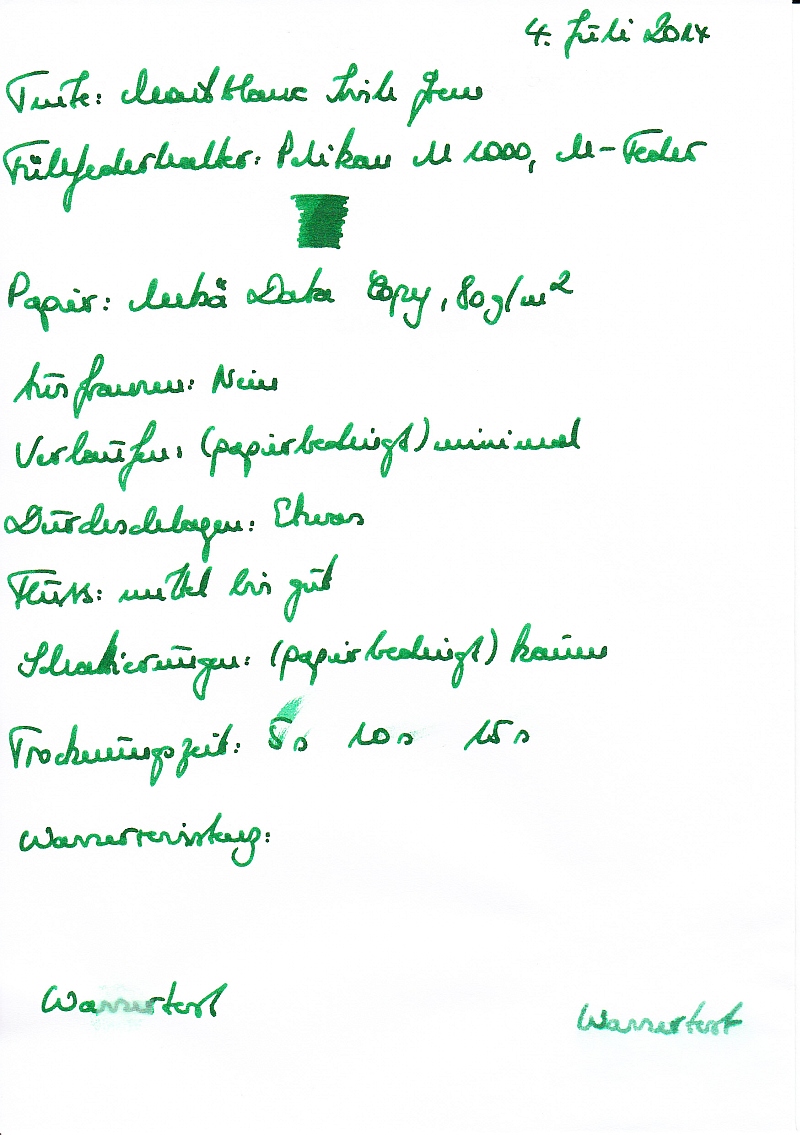 4. Juli 2014
Tinte: Montblanc Irish Green
Füllfederhalter: Pelikan M 1000, M-Feder
Papier: Data Copy, 80g/m²
Ausfransen: Nein
Verlaufen: (papierbedingt) minimal
Durchschlagen: Etwas
Fluss: mittel bis gut
Schattierungen: (papierbedingt) kaum
Trocknungszeit: 5s 10s 15s
Wasserresistenz:
Wassertest
Wassertest